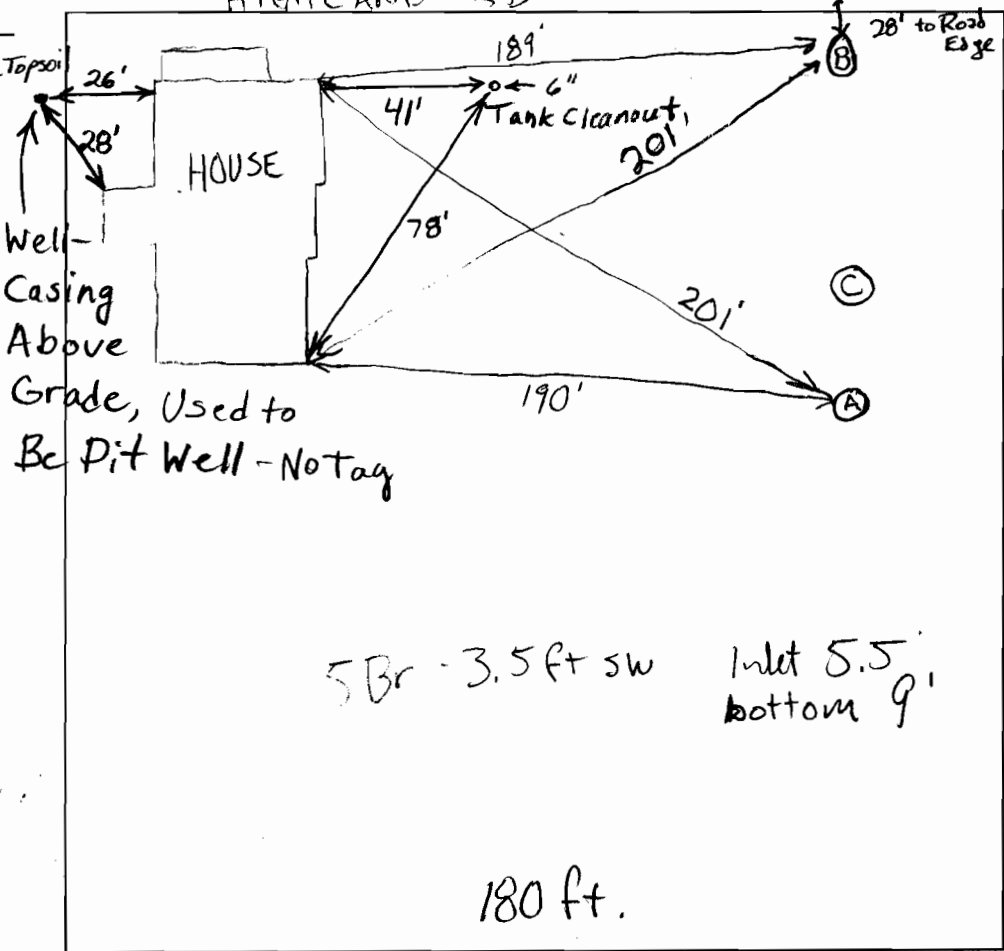 28' to Road
Edge
B
189'
Topsoil
26'
41'
6"
Tank Cleanout
28'
HOUSE
201'
78'
Well-
Casing
Above
Grade, Used to
Be Pit Well - No Tag
C
201'
190'
A
5 Br - 3.5 ft sw
Inlet 5.5'
bottom 9'
180 ft.